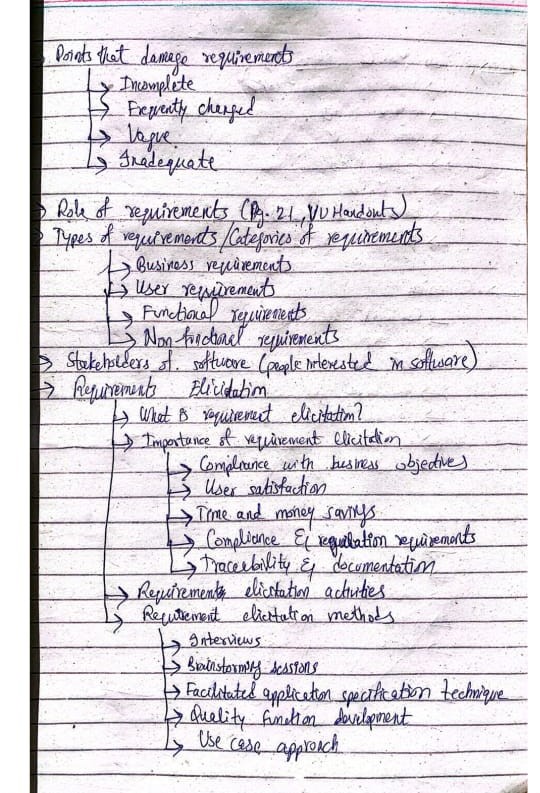 Points that damage requirements
Incomplete
Freqently changed
Vague
Inadequate
Role of requirements (Pg. 21, VU Handouts)
Types of requirements/Categories of requirements
Business requirements
User requirements
Functional requirements
Non functional requirements
Stakeholders of software (people interested in software)
Requirements Elicidation
What is requirement elicitation?
Importance of requirement elicitation
Compliance with business objectives
User satisfaction
Time and money savings
Compliance & regulation requirements
Tracebility & documentation
Requirements elicitation activities
Requirement elicitation methods
Interviews
Brainstorming sessions
Facilitated application specification technique
Quality function development
Use case approach